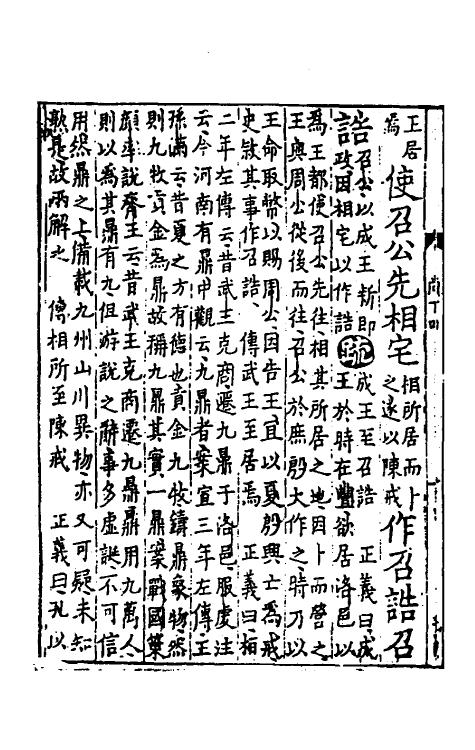 尚丁四
王居
焉
使召公先相宅
相所居而卜
之遂以陳戒
作召誥召
誥
召公以成王新即
政因相宅以作誥
疏
成王至召誥　正義曰成
王於時在豐欲居洛邑以
為王都使召公先往相其所居之地因卜而營之
王與周公從後而往召公於庶殷大作之時乃以
王命取幣以賜周公因告王宜以夏殷興亡為戒
史敘其事作召誥　傳武王至居焉　正義曰桓
二年左傳云昔武王克商遷九鼎于洛邑服虔注
云今河南有鼎中觀云九鼎者案宣三年左傳王
孫滿云昔夏之方有德也貢金九牧鑄鼎象物然
則九牧貢金為鼎故稱九鼎其實一鼎案戰國策
顏率說齊王云昔武王克商遷九鼎鼎用九萬人
則以為其鼎有九但游說之辭事多虛誕不可信
用然鼎之上備載九州山川異物亦又可疑未知
孰是故兩解之　傳相所至陳戒　正義曰孔以